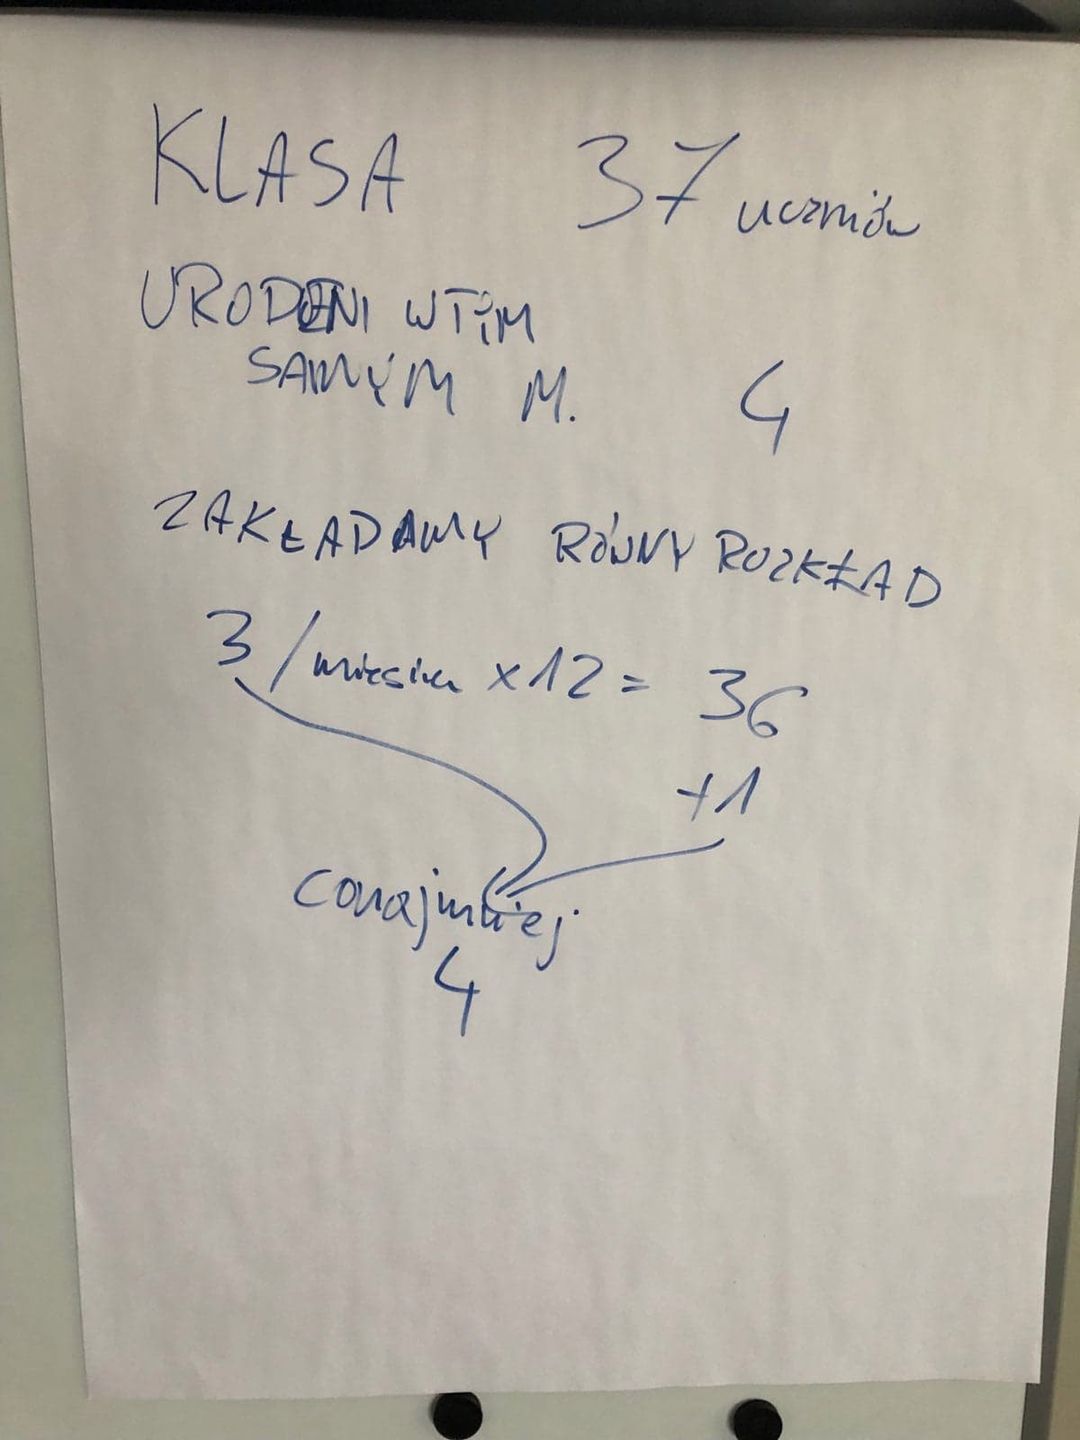 KLASA 37 uczniów
URODZENI W TYM
SAMYM M. 4
ZAKŁADAMY RÓWNY ROZKŁAD
3 / miesiąc x 12 = 36
+1
conajmniej
4